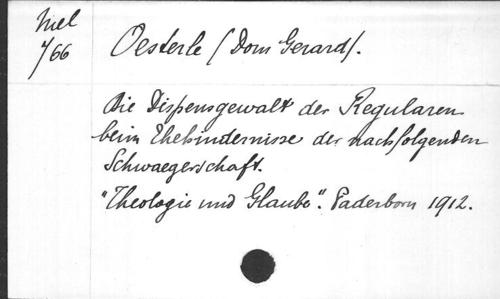 Mel
466
Oesterle (Dom Gerard).
Die Dispensgewalt der Regularen
beim Ehehindernisse der nachfolgenden
Schwaegerschaft.
"Theologie und Glaube". Paderborn 1912.